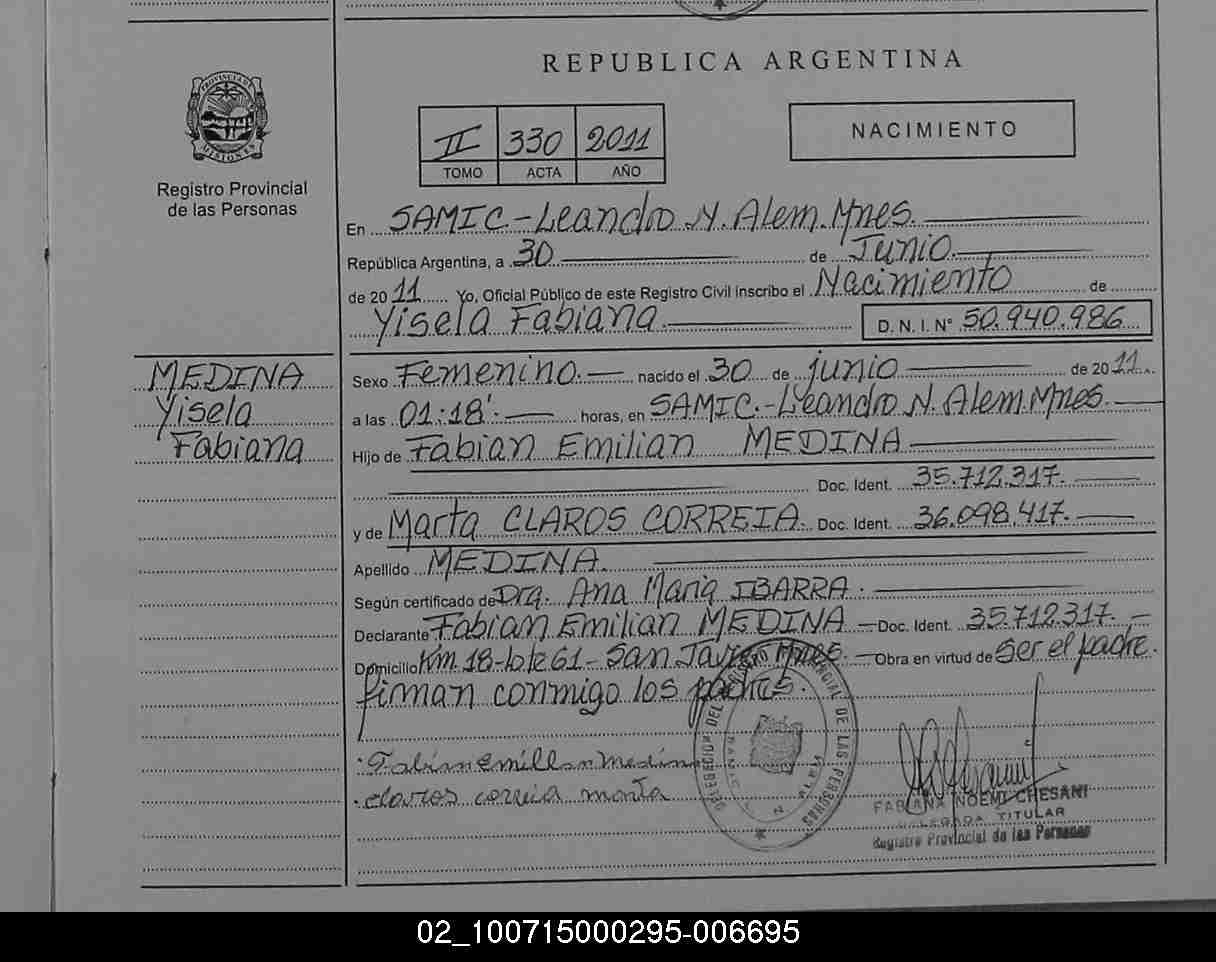 REPUBLICA ARGENTINA
PROVINCIA DE
MISIONES
Registro Provincial
de las Personas
II 330 2011
TOMO ACTA AÑO
NACIMIENTO
En SAMIC.-Leandro N. Alem.Mnes.
República Argentina, a 30 de Junio.
de 2011 Yo, Oficial Público de este Registro Civil inscribo el Nacimiento de
Yisela Fabiana. D. N. I. N° 50.940.986
MEDINA
Yisela
Fabiana
Sexo Femenino. nacido el 30 de junio de 2011.
a las 01:18'. horas, en SAMIC.-Leandro N. Alem.Mnes.
Hijo de Fabian Emilian MEDINA
Doc. Ident. 35.712.317.
y de Marta CLAROS CORREIA. Doc. Ident. 36.098.417.
Apellido MEDINA.
Según certificado de Dra. Ana Maria IBARRA.
Declarante Fabian Emilian MEDINA Doc. Ident. 35.712.317.
Domicilio Km 18-lote 61-San Javier Mnes. Obra en virtud de ser el padre.
firman conmigo los padres.
Fabian emillan medin
claros correia marta
PROVINCIAL DE LAS PERSONAS
FABIANA NOEMI CHESANI
DELEGADA TITULAR
Registro Provincial de las Personas
02_100715000295-006695